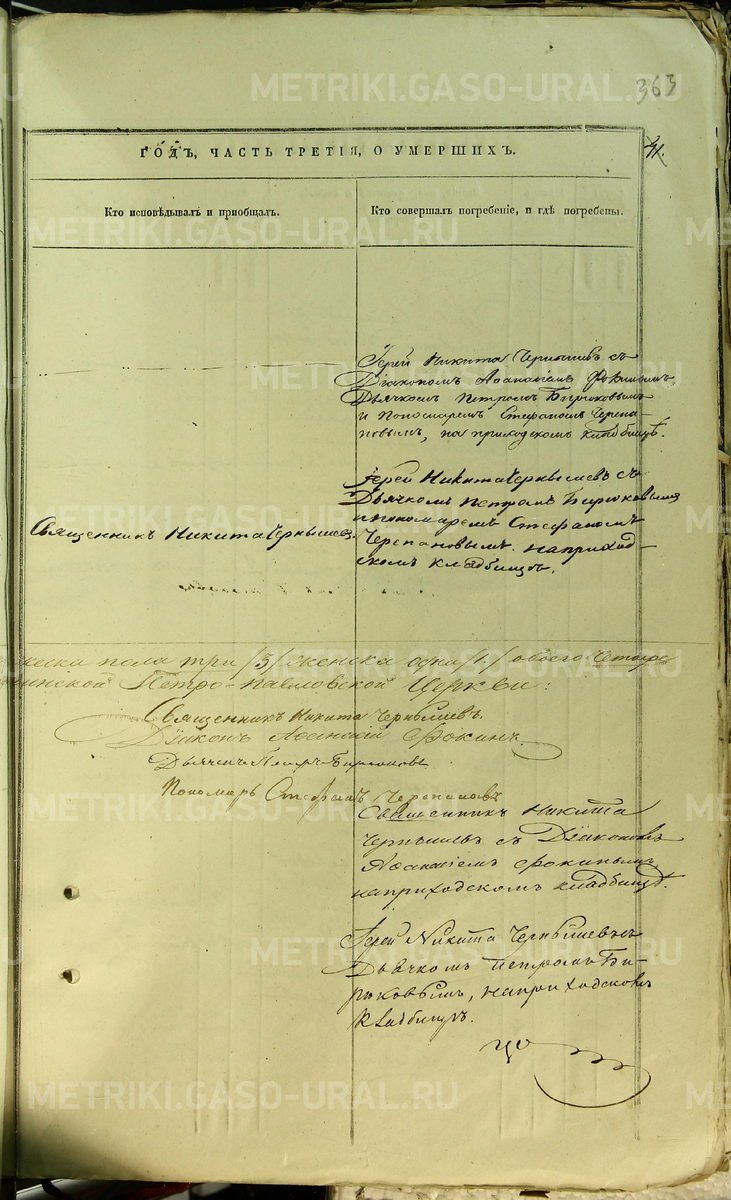 363
METRIKI.GASO-URAL.RU
ГОДЪ, ЧАСТЬ ТРЕТІЯ, О УМЕРШИХЪ.
Кто исповѣдывалъ и приобщалъ.
Кто совершалъ погребеніе, и гдѣ погребены.
METRIKI.GASO-URAL.RU
Іерей Никита Чернышевъ съ
Діакономъ Аѳанасіемъ Ѳокинымъ,
Дьячкомъ Петромъ Бирюковымъ
и Пономаремъ Стефаномъ Черепа-
новымъ, на приходскомъ кладбищѣ.
METRIKI.GASO-URAL.RU
Іерей Никита Чернышевъ съ
Дьячкомъ Петромъ Бирюковымъ
и пономаремъ Стефаномъ
Черепановымъ. на приход-
скомъ кладбищѣ.
Священникъ Никита Чернышев
METRIKI.GASO-URAL.RU
пола три /3/ женска одна /1/ обоего четыре
Петро-Павловской Церкви:
Священникъ Никита Чернышевъ.
Діаконъ Аѳанасій Ѳокинъ.
Дьячекъ Петръ Бирюковъ
Пономарь Стефанъ Черепановъ
METRIKI.GASO-URAL.RU
Священникъ Никита
Чернышевъ съ Діакономъ
Аѳанасіемъ Ѳокинымъ,
на приходскомъ кладбищѣ.
METRIKI.GASO-URAL.RU
Іерей Никита Чернышевъ съ
Дьячкомъ Петромъ Би-
рюковымъ, на приходскомъ
кладбищѣ.
METRIKI.GASO-URAL.RU